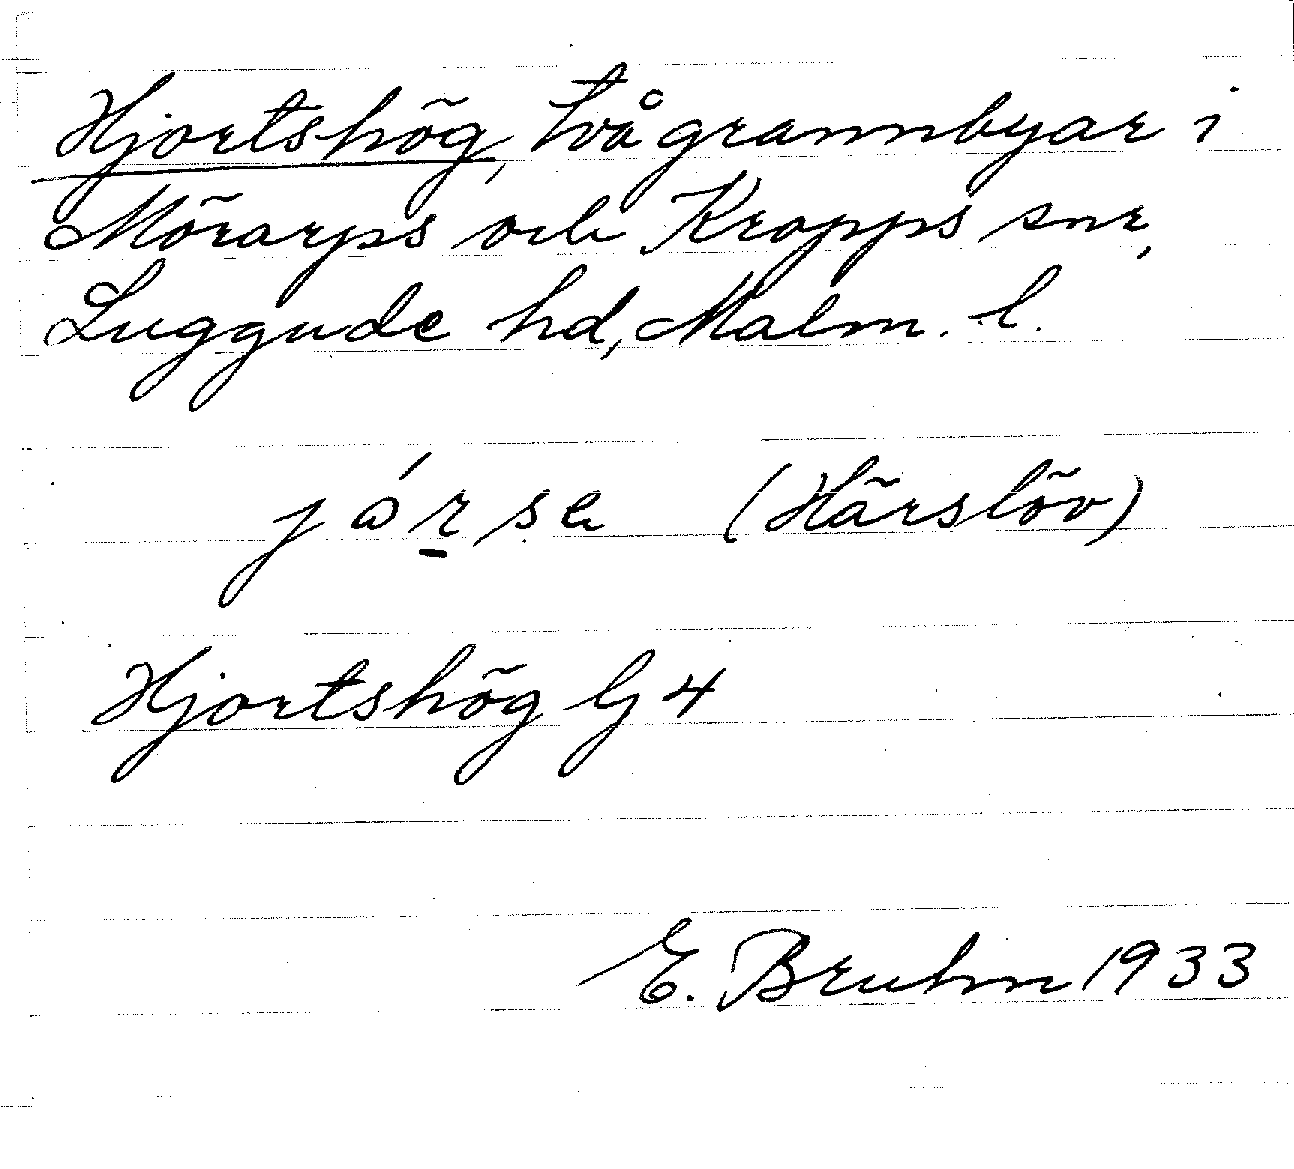 Hjortshög, två grannbyar i
Mörarps och Kropps snr,
Luggude hd, Malm. l.
(Härslöv)
Hjortshög G 4
E. Bruhn 1933